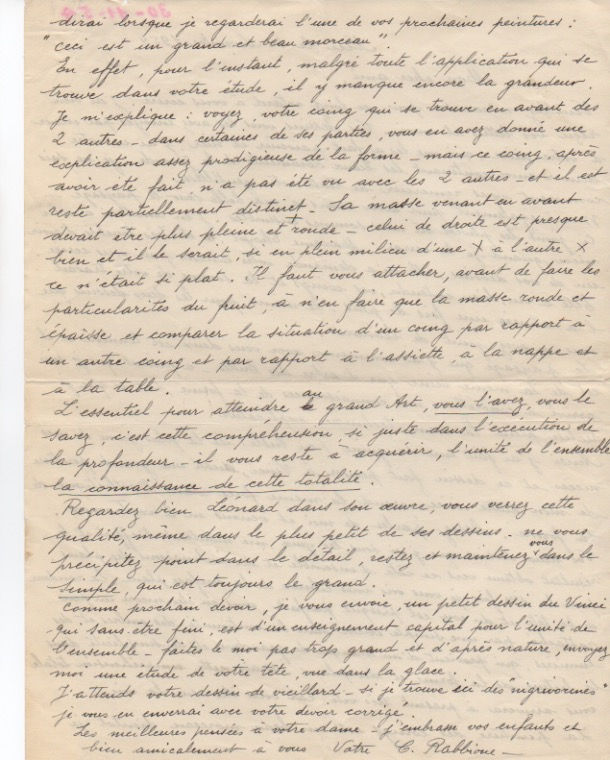 30-11-58
dirai lorsque je regarderai l'une de vos prochaines peintures :
"ceci est un grand et beau morceau"
En effet, pour l'instant, malgré toute l'application qui se
trouve dans votre étude, il y manque encore la grandeur.
Je m'explique : voyez, votre coing qui se trouve en avant des
2 autres - dans certaines de ses parties, vous en avez donné une
explication assez prodigieuse de la forme - mais ce coing, après
avoir été fait n'a pas été vu avec les 2 autres - et il est
resté partiellement distinct - Sa masse venant en avant
devait être plus pleine et + ronde - celui de droite est presque
bien et il le serait, si en plein milieu d'une X à l'autre X
ce n'était si plat. Il faut vous attacher, avant de faire les
particularités du fruit, à n'en faire que la masse ronde et
épaisse et comparer la situation d'un coing par rapport à
un autre coing et par rapport à l'assiette, à la nappe et
à la table.
L'essentiel pour atteindre au grand Art, vous l'avez, vous le
savez, c'est cette compréhension si juste dans l'exécution de
la profondeur - il vous reste à acquérir, l'unité de l'ensemble
la connaissance de cette totalité.
Regardez bien Léonard dans son œuvre, vous verrez cette
qualité, même dans le plus petit de ses dessins - ne vous
précipitez point dans le détail, restez et maintenez vous dans le
simple, qui est toujours le grand.
Comme prochain devoir, je vous envoie, un petit dessin du Vinci
qui sans être fini, est d'un enseignement capital pour l'unité de
l'ensemble - faites le moi pas trop grand et d'après nature, envoyez
moi une étude de votre tête, vue dans la glace.
J'attends votre dessin de vieillard - si je trouve ici des
je vous en enverrai avec votre devoir corrigé.
Les meilleures pensées à votre dame - j'embrasse vos enfants et
bien amicalement à vous Votre C. Rabbione -